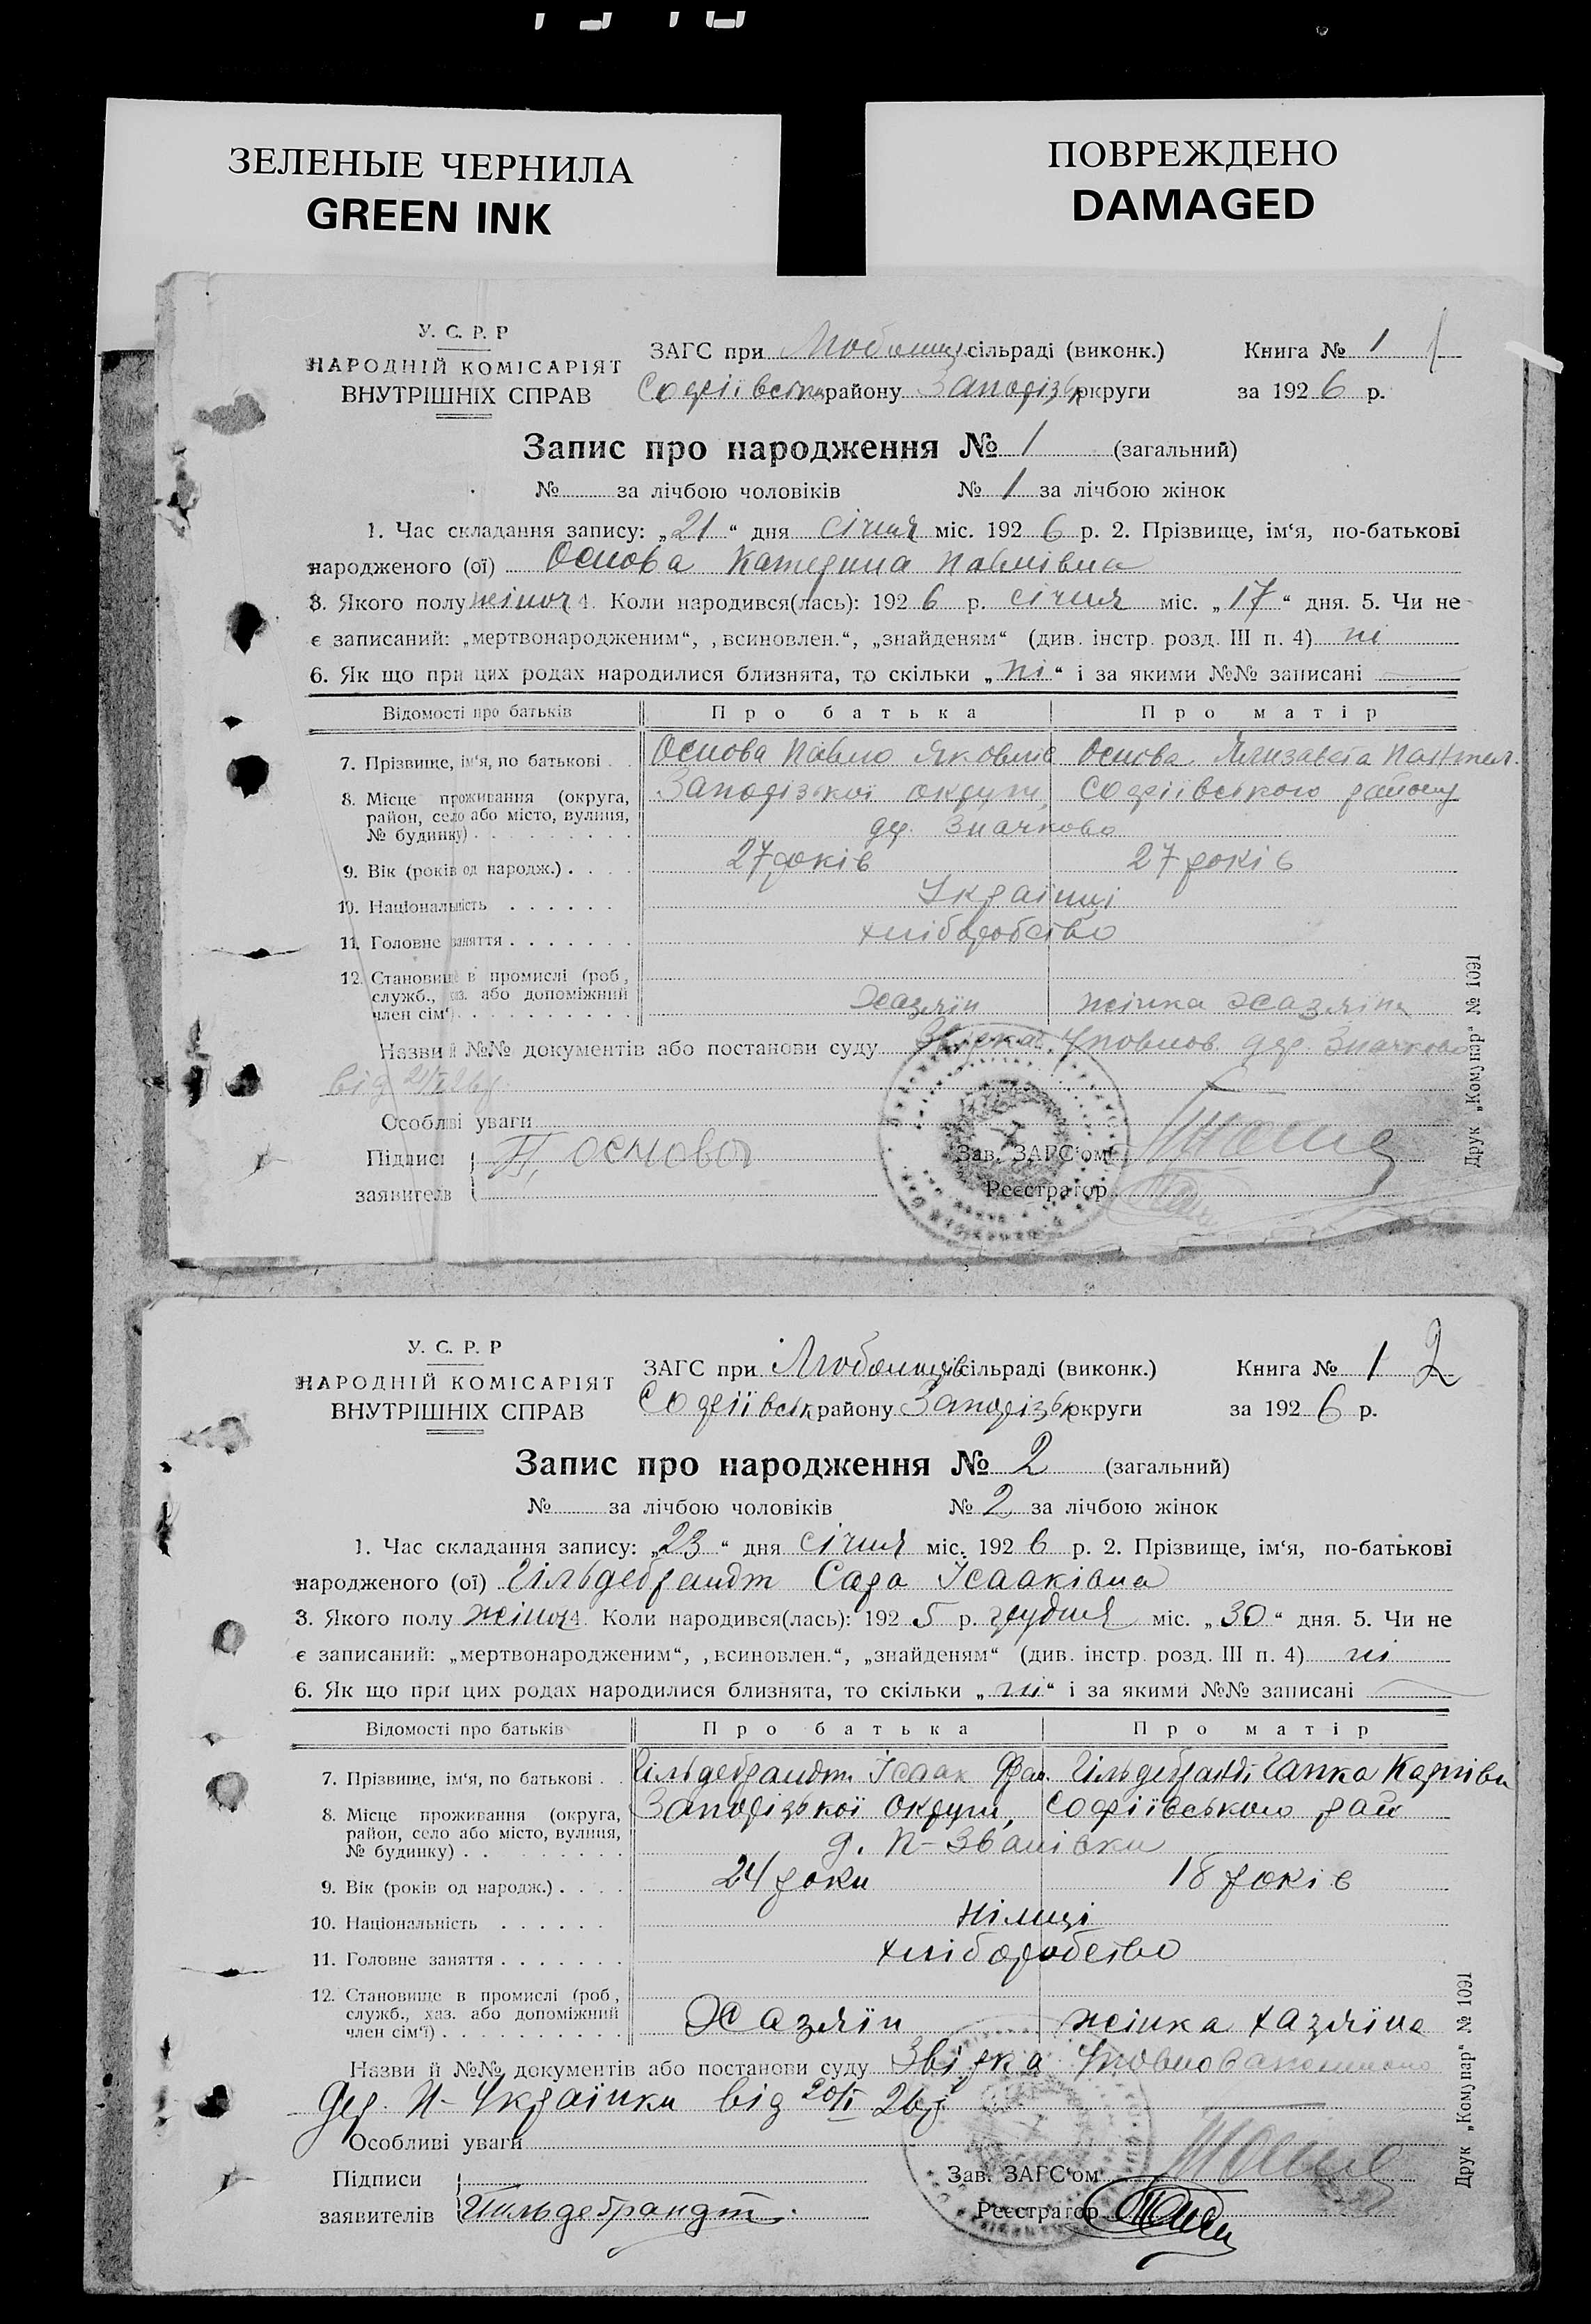 ЗЕЛЕНЫЕ ЧЕРНИЛА
GREEN INK
ПОВРЕЖДЕНО
DAMAGED
У. С. Р. Р
НАРОДНІЙ КОМІСАРІЯТ
ВНУТРІШНІХ СПРАВ
ЗАГС при сільраді (виконк.) Книга № 1 1
Софіївськ району Запорізьк округи за 1926 р.
Запис про народження № 1 (загальний)
№ за лічбою чоловіків № 1 за лічбою жінок
1. Час складання запису: „21“ дня січня міс. 1926 р. 2. Прізвище, ім‘я, по-батькові
народженого (ої) Основа Катерина Павлівна
3. Якого полу жіноч 4. Коли народився(лась): 1926 р. січня міс. „17“ дня. 5. Чи не
є записаний: „мертвонародженим“, „всиновлен.“, „знайденям“ (див. інстр. розд. III п. 4) ні
6. Як що при цих родах народилися близнята, то скільки „ні“ і за якими №№ записані
Відомості про батьків Про батька Про матір
7. Прізвище, ім‘я, по батькові Основа Павло Яковлів Основа Єлизавета
8. Місце проживання (округа, район, село або місто, вулиця, № будинку) Запорізької округи, Софіївського району
дер. Значково
9. Вік (років од народж.) 27 років 27 років
10. Національність Українці
11. Головне заняття хліборобство
12. Становище в промислі (роб., служб., хаз. або допоміжний член сім‘ї) Хазяїн жінка Хазяїна
Назви й №№ документів або постанови суду Уповнов. дер. Значково
від 21/I 26р
Особливі уваги
Підписи П. Основа Зав. ЗАГС‘ом
заявителів Реєстратор
Друк „Комунар“ № 1091
У. С. Р. Р
НАРОДНІЙ КОМІСАРІЯТ
ВНУТРІШНІХ СПРАВ
ЗАГС при сільраді (виконк.) Книга № 1 2
Софіївськ району Запорізьк округи за 1926 р.
Запис про народження № 2 (загальний)
№ за лічбою чоловіків № 2 за лічбою жінок
1. Час складання запису: „23“ дня січня міс. 1926 р. 2. Прізвище, ім‘я, по-батькові
народженого (ої) Гільдебрандт Сара Ісааківна
3. Якого полу жіноч 4. Коли народився(лась): 1925 р. грудня міс. „30“ дня. 5. Чи не
є записаний: „мертвонародженим“, „всиновлен.“, „знайденям“ (див. інстр. розд. III п. 4) ні
6. Як що при цих родах народилися близнята, то скільки „ні“ і за якими №№ записані
Відомості про батьків Про батька Про матір
7. Прізвище, ім‘я, по батькові Гільдебрандт Ісаак Гільдебрандт
8. Місце проживання (округа, район, село або місто, вулиця, № будинку) Запорізької округи, Софіївського рай
д. Н-Званівки
9. Вік (років од народж.) 24 роки 18 років
10. Національність Німці
11. Головне заняття хліборобство
12. Становище в промислі (роб., служб., хаз. або допоміжний член сім‘ї) Хазяїн жінка хазяїна
Назви й №№ документів або постанови суду Звірка
дер. Н-Українки від 20/I 26р
Особливі уваги
Підписи Зав. ЗАГС‘ом
заявителів Гильдебрандт. Реєстратор
Друк „Комунар“ № 1091